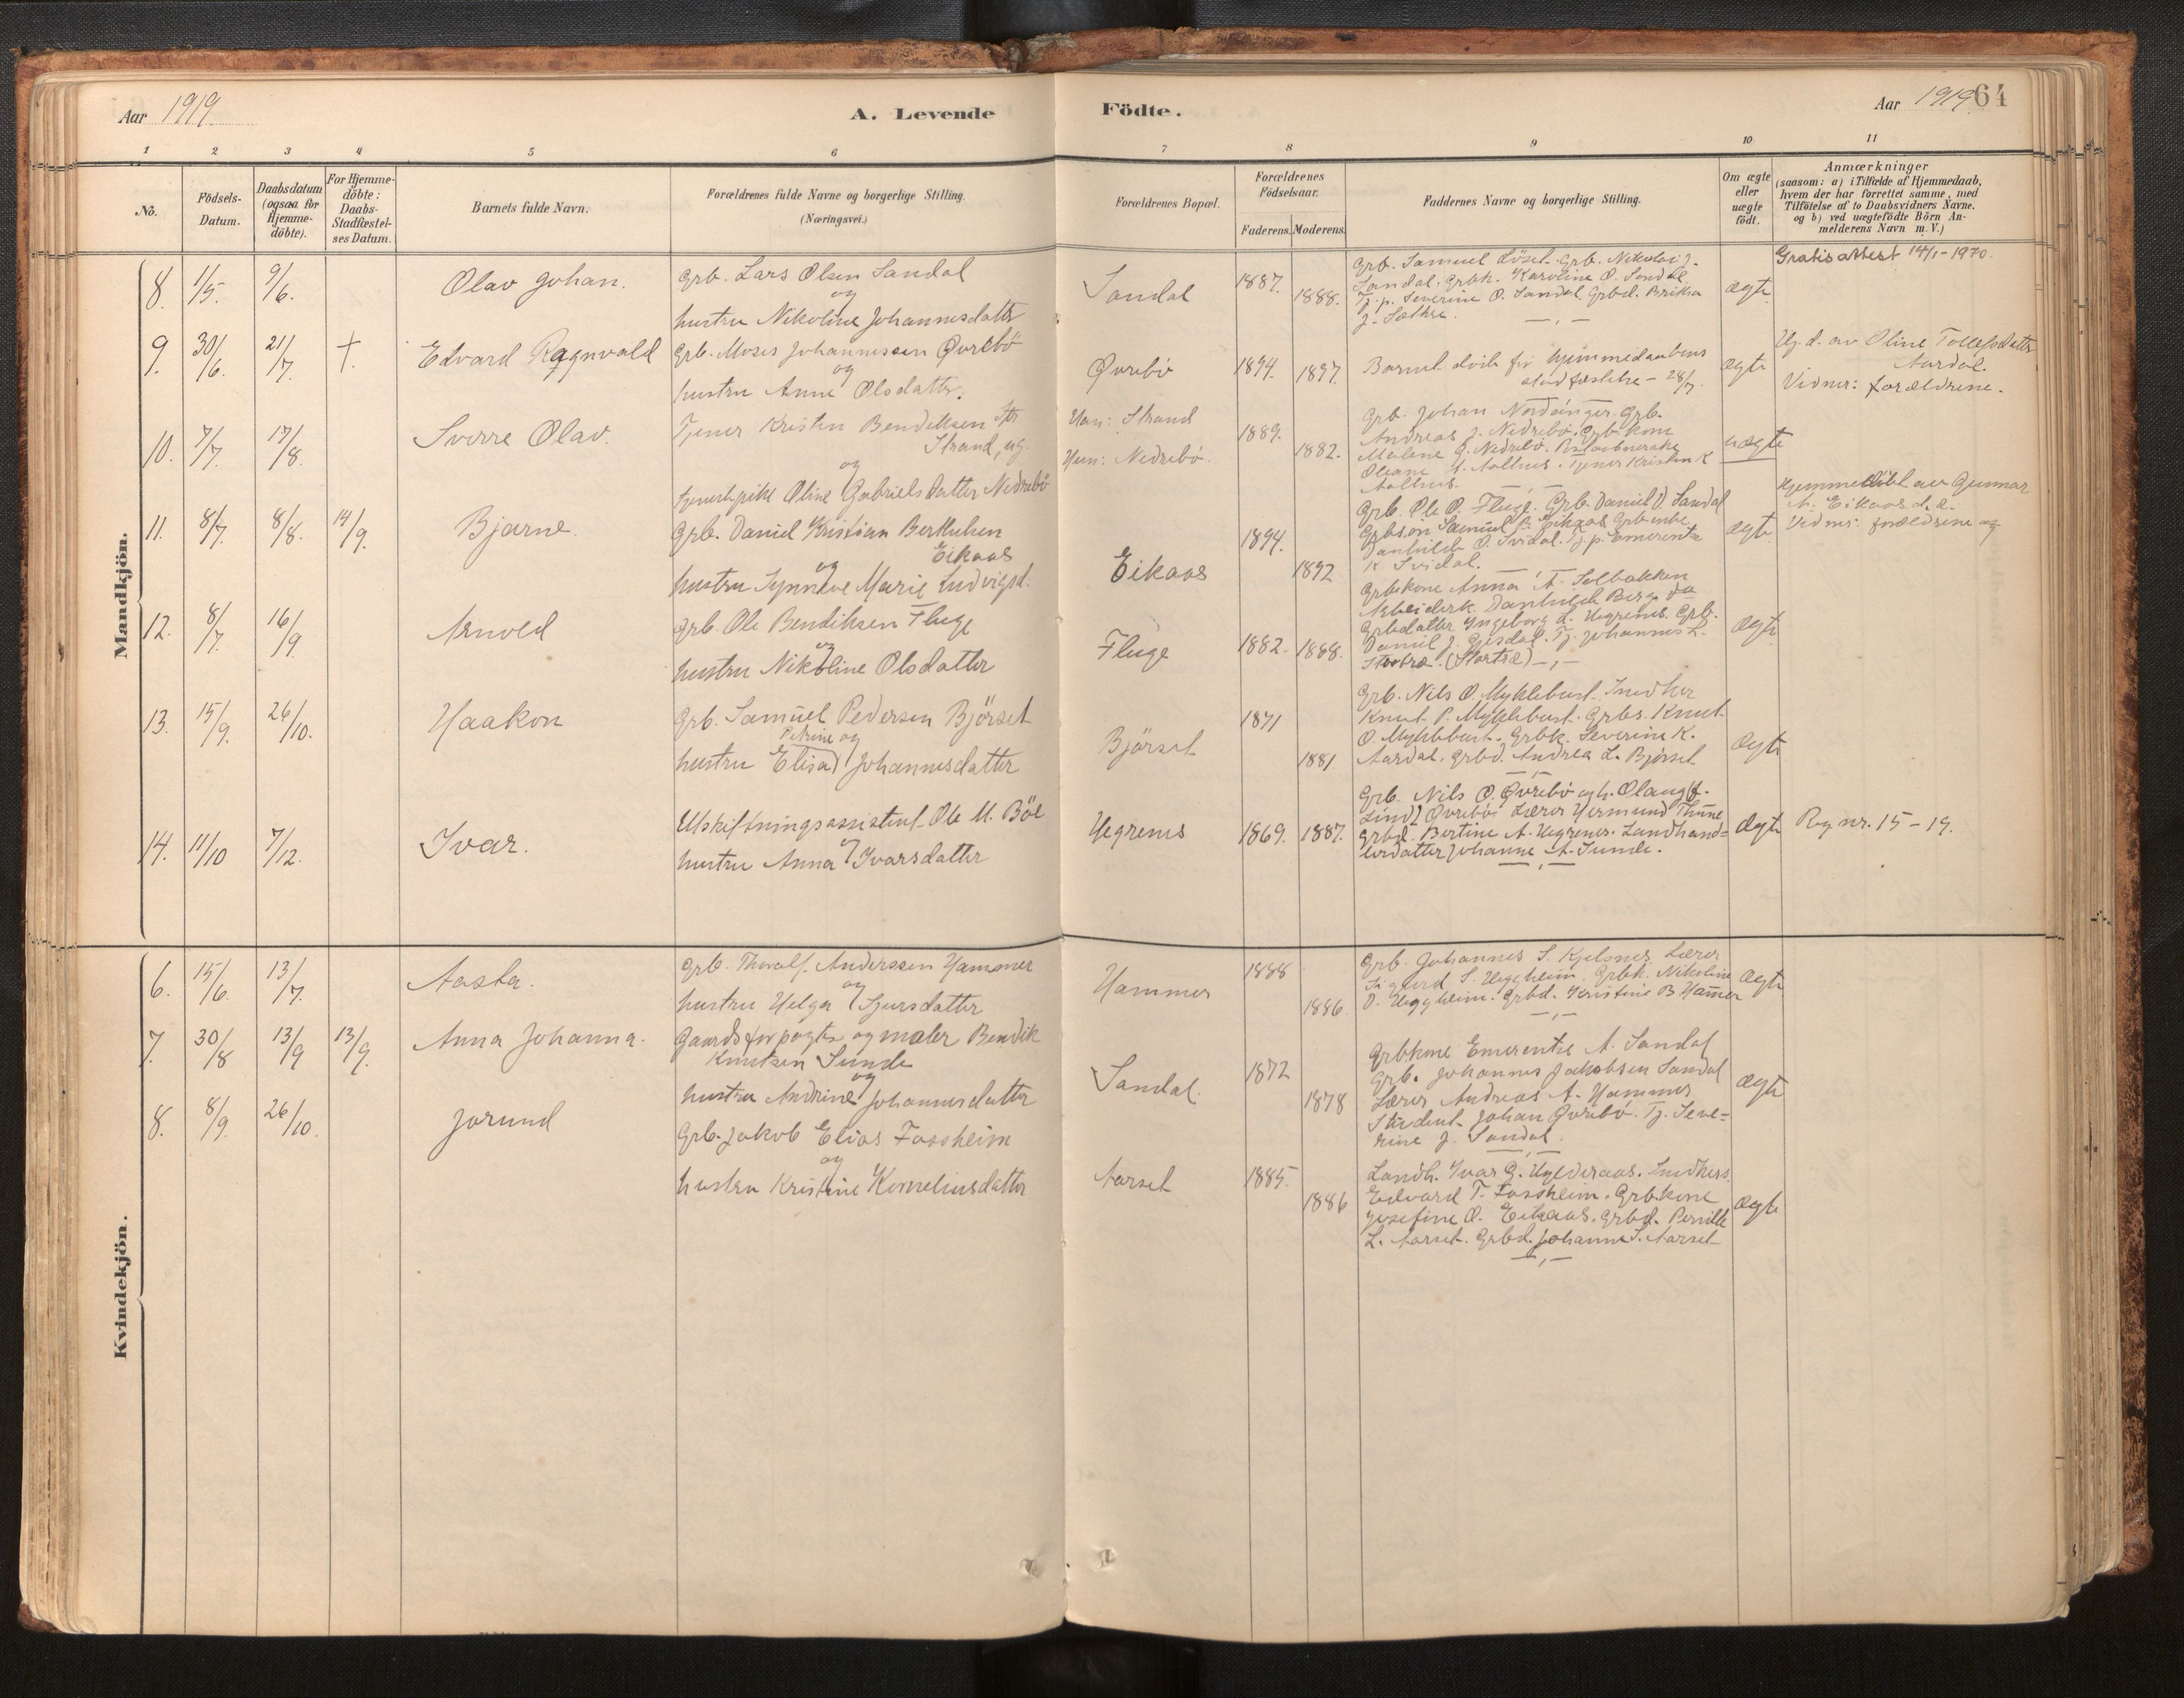 Aar 1919
A. Levende
Födte.
Aar 1919 64
1 2 3 4 5 6 7 8 9 10 11
No.
Födsels-Datum.
Daabsdatum (ogsaa for Hjemme-döbte).
For Hjemme-döbte: Daabs-Stadfæstel-ses Datum.
Barnets fulde Navn.
Forældrenes fulde Navne og borgerlige Stilling.
(Næringsvei.)
Forældrenes Bopæl.
Forældrenes Födselsaar.
Faderens. Moderens.
Faddernes Navne og borgerlige Stilling.
Om ægte eller uægte födt.
Anmærkninger
(saasom: a) i Tilfælde af Hjemmedaab,
hvem der har forrettet samme, med
Tilföielse af to Daabsvidners Navne.
og b) ved uægtefödte Börn An-
melderens Navn m. V.)
Mandkjön.
8. 1/5. 9/6. Olav Johan.
Grb. Lars Olsen Sandal
og
hustru Nikoline Johannesdatter
Sandal 1887. 1888.
Grb. Samuel Löset. Grb. Nikolai J.
Sandal. Grbk. Karoline O. Sandal.
Tj. p. Severine O. Sandal. Grbd. Brikka
J. Sæthre. —,—
ægte
Gratis attest 14/1-1970.
9. 30/6. 21/7. +. Edvard Ragnvald
Grb. Moses Johannessen Øvrebö
og
hustru Anne Olsdatter.
Øvrebö 1894. 1897.
Barnet döde för hjemmedaabens
stadfæstelse - 28/7.
ægte
Hj. d. av Oline Tollefsdatter
Aardal.
Vidner: forældrene.
10. 7/7. 17/8. Sverre Olav.
Tjener Kristen Bendiksen
Strand, ug.
og
tjenestepike Oline Gabrielsdatter Nedrebö
Han: Strand
Hun: Nedrebö.
1889. 1882.
Grb. Johan Nordanger. Grb.
Andreas J. Nedrebö. Grbkone
Malene G. Nedrebö.
Oleane Aalhus. Tjener Kristen K
Aalhus.
uægte
11. 8/7. 8/8. 14/9. Bjarne.
Grb. Daniel Kristian Berthelsen
Eikaas
og
hustru Synnöve Marie Ludvigsd.
Eikaas 1894. 1892
Grb. Ole O. Fluge. Grb. Daniel D. Sandal
Grbsön Samuel B. Eikaas Grbenke
Danhilde O. Svidal. Tj. p. Emerente
K Svidal.
ægte
Hjemmedöbt av Gunnar
A. Eikaas d. e.
Vidner: forældrene og
12. 8/7. 16/9 Arnold
Grb. Ole Bendiksen Fluge
og
hustru Nikoline Olsdatter
Fluge 1882. 1888.
Grbkone Anna A. Solbakken
Arbeiderk. Danhilde Berge
Grbdatter Ingeborg d. Hegrenes. Grb.
Daniel J. Gjesdal. Tj. Johannes L.
(Stortræ) —,—
ægte
13. 15/9. 26/10. Haakon
Grb. Samuel Pedersen Björset
Petrine og
hustru Elisa Johannesdatter
Björset 1871 1881
Grb. Nils O. Myklebust. Indher
Knut P. Myklebust. Grbs. Knut
O. Myklebust. Grbk. Severine K.
Aardal. Grbd. Andrea L. Björset
—,—
ægte
14. 11/10 7/12. Ivar.
Utskiftningsassistent Ole M. Böe
og
hustru Anna Ivarsdatter
Hegrenes 1869. 1887.
Grb. Nils O. Øvrebö og h. Olaug
Lind Øvrebö. Lærer Hermund Thune
Grbd. Bertine A. Hegrenes. Landhand=
lerdatter Johanne A. Sunde.
—,—
ægte
Reg nr. 15-19.
Kvindekjön.
6. 15/6. 13/7. Aasta.
Grb. Thoralf Anderssen Hammer
og
hustru Helga Sjursdatter
Hammer 1888 1886
Grb. Johannes S. Kjelsnes. Lærer
Sigurd S. Heggheim. Grbk. Nikoline
O. Heggheim. Grbd. Kristine B Hammer
—,—
ægte
7. 30/8 13/9 13/9. Anna Johanna.
Gaardsforpagter og maler Bendik
Knutsen Sunde
og
hustru Andrine Johannesdatter
Sandal. 1872 1878
Grbkone Emerentse A. Sandal
Grb. Johannes Jakobsen Sandal
Lærer Andreas A. Hammer
Student Johan Øvrebö. Tj. Seve=
rine J. Sandal.
—,—
ægte
8. 8/9. 26/10. Jorund
Grb. Jakob Elias Fossheim
og
hustru Kristine Korneliusdatter
Aarset 1885. 1886
Landh. Ivar G. Hylderaas. Indhers
Edvard T. Fossheim. Grbkone
Josefine O. Eikaas. Grbd. Pernille
L. Aarset. Grbd. Johanne S. Aarset
—,—
ægte